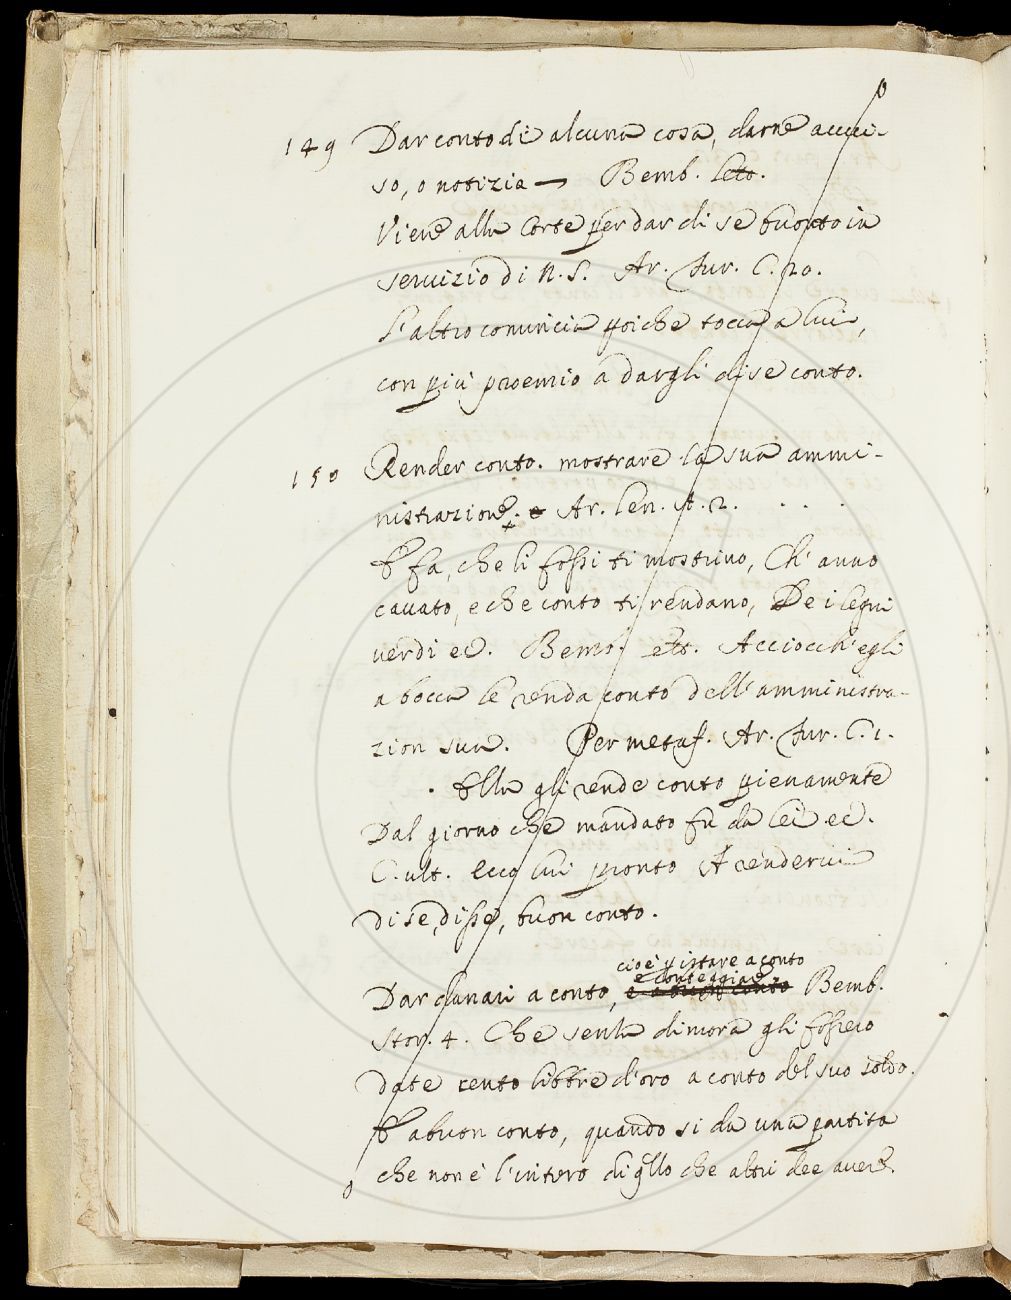 149 Dar conto di alcuna cosa, darne avvi-
so, o notizia — Bemb. lett.
Viene alla Corte per dar di se buonto in
servizio di N. S. Ar. Fur. C. 20.
L'altro comincia poiche tocca a lui,
con più proemio a dargli di se conto.
150 Render conto. mostrare la sua ammi-
nistrazione. Ar. len. A. 2. . . .
E fa, che li fossi ti mostrino, Ch' anno
cavato, e che conto ti rendano, De i legni
verdi ec. Bemb. lett. Acciocch' egli
a bocca le renda conto dell' amministra-
zion sua. Per metaf. Ar. Fur. C. 1.
Ella gli rende conto pienamente
Dal giorno che mandato fu da lei ec.
C. ult. Ecco lui pronto A rendervi
di se, disse, buon conto.
cioè p istare a conto
e conteggiare
Dar danari a conto, e a buon conto Bemb.
Stor. 4. Che senza dimora gli fossero
date cento libbre d'oro a conto del suo soldo.
E a buon conto, quando si da una partita
che non è l'intero di qllo che altri dee avere.